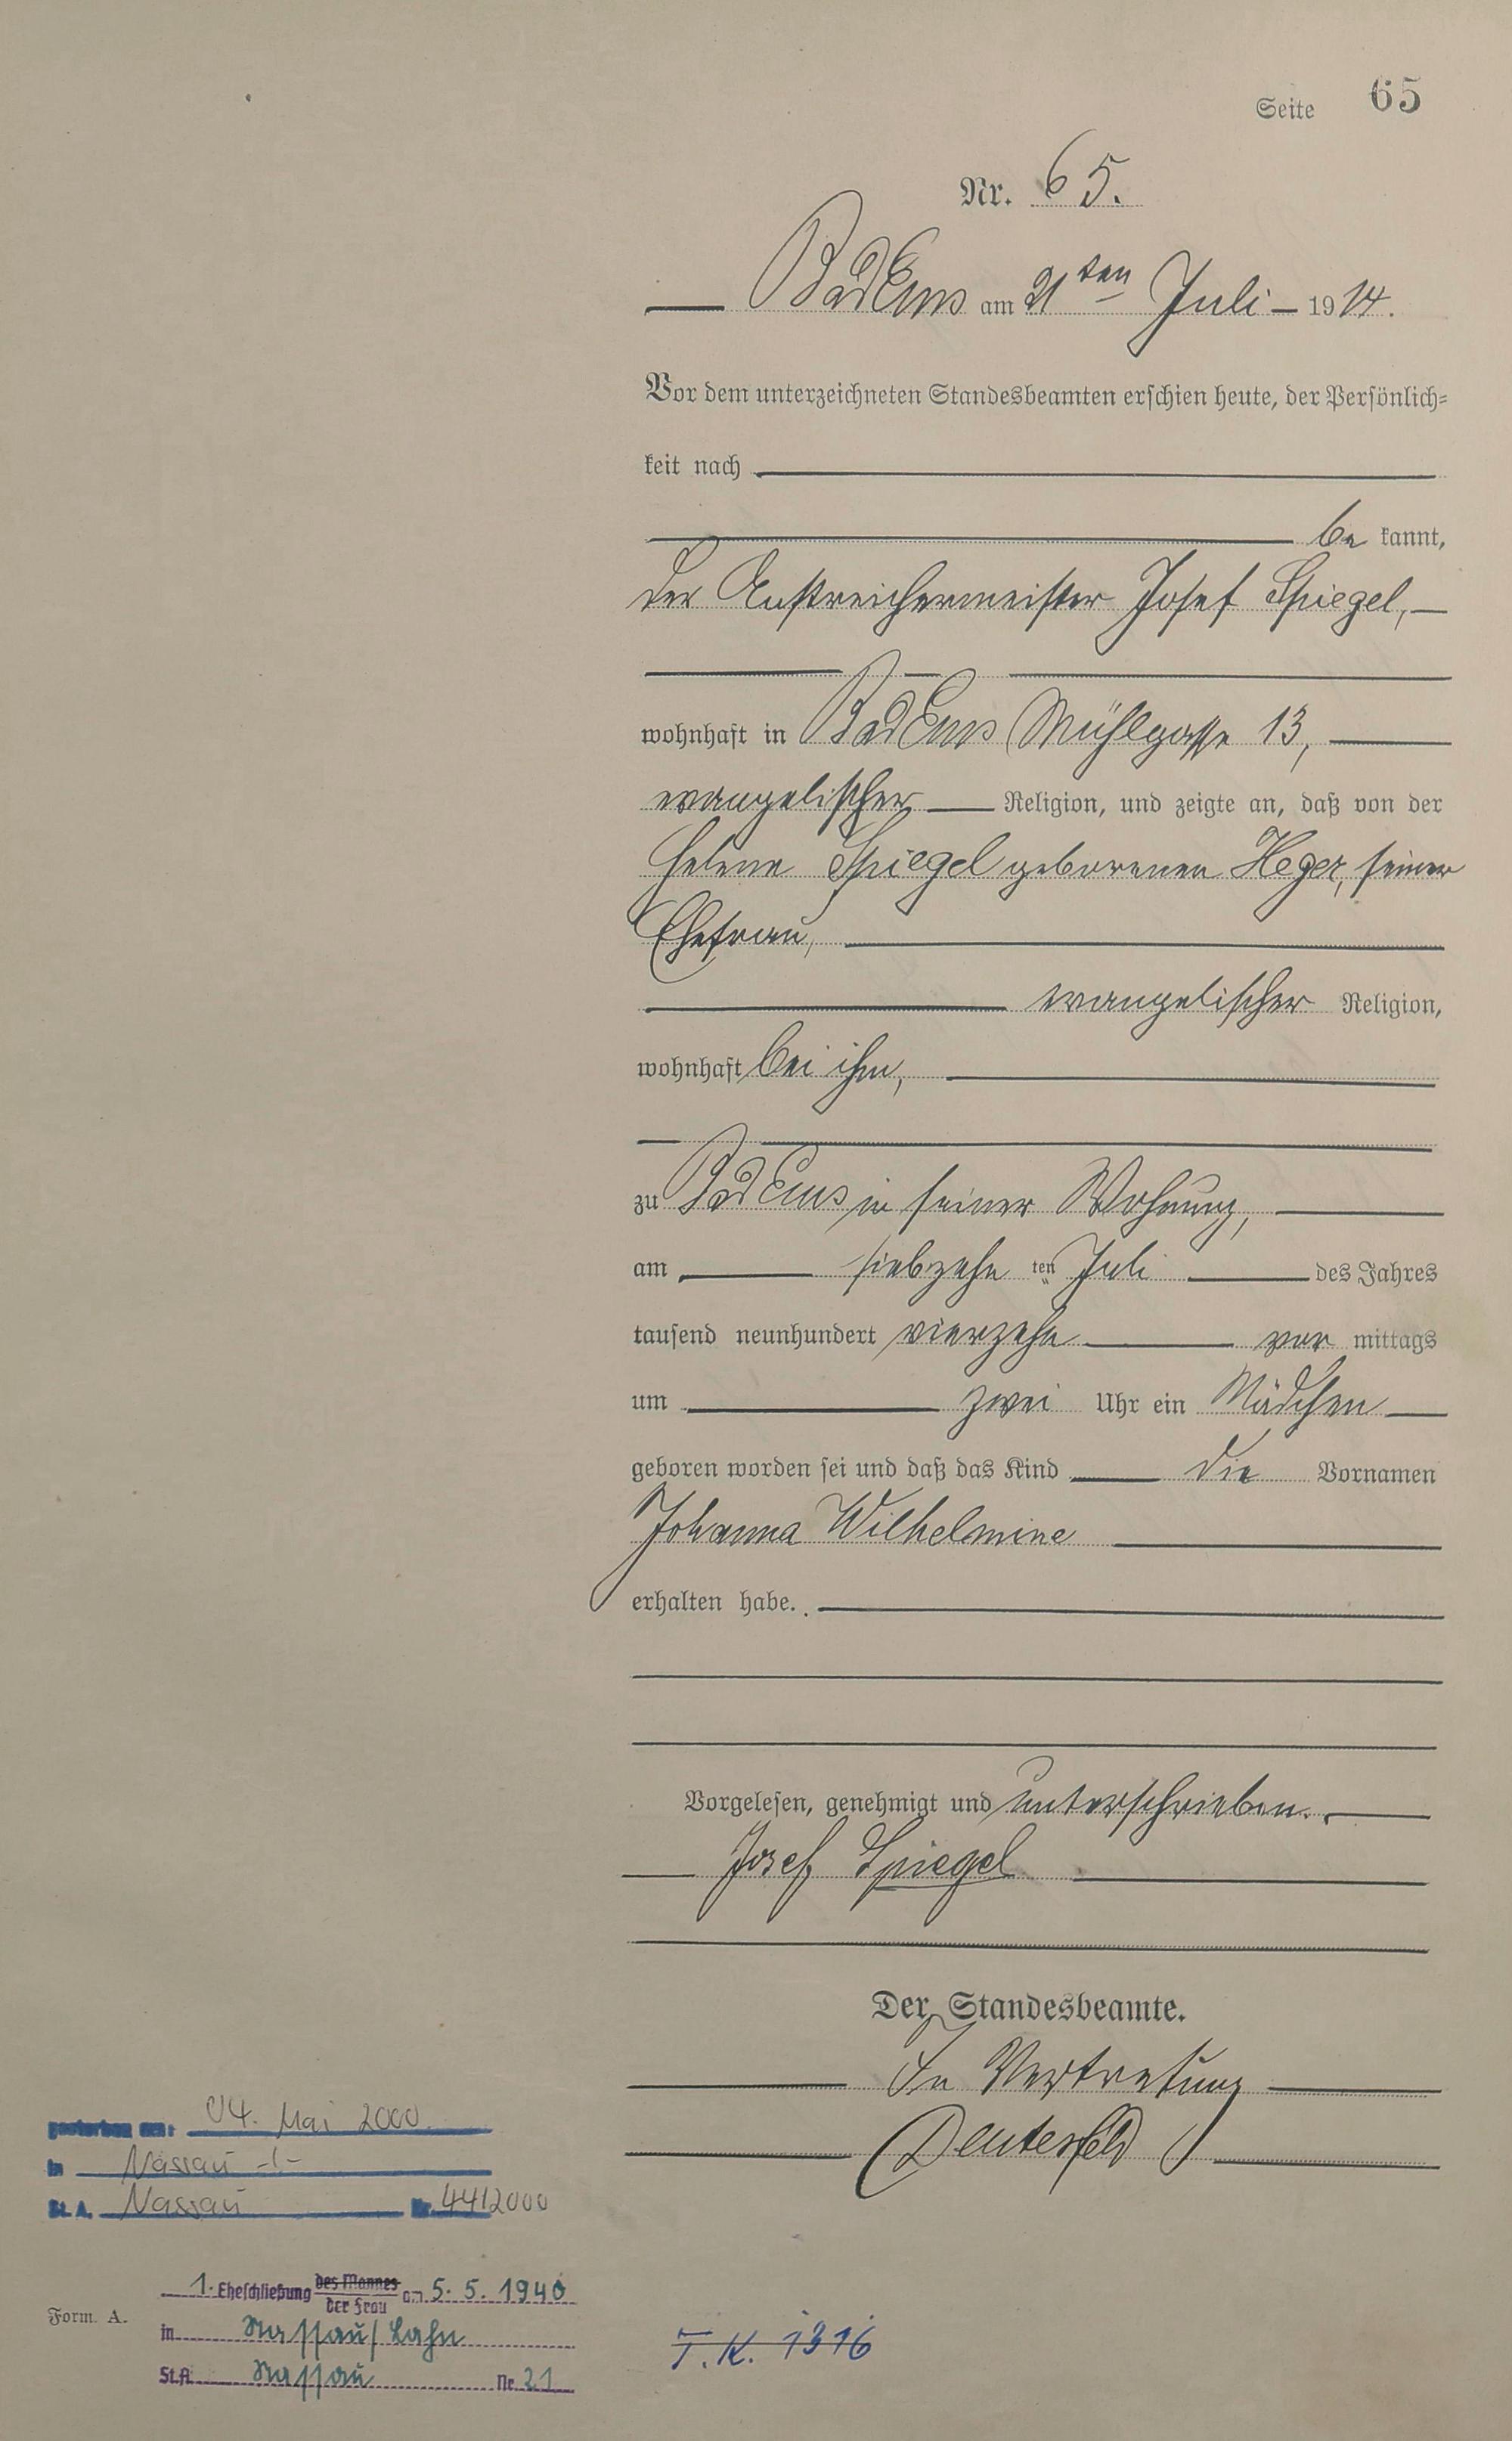 Seite 65
Nr. 65.
Bad Ems am 21ten Juli 1914.
Vor dem unterzeichneten Standesbeamten erschien heute, der Persönlich-
keit nach
be kannt,
der Anstreichermeister Josef Spiegel,
wohnhaft in Bad Ems Mühlgasse 13,
evangelischer Religion, und zeigte an, daß von der
Helene Spiegel geborenen Heger, seiner
Ehefrau,
evangelischer Religion,
wohnhaft bei ihm,
zu Bad Ems in seiner Wohnung,
am siebzehn ten Juli des Jahres
tausend neunhundert vierzehn vor mittags
um zwei Uhr ein Mädchen
geboren worden sei und daß das Kind die Vornamen
Johanna Wilhelmine
erhalten habe.
Vorgelesen, genehmigt und unterschrieben.
Josef Spiegel
Der Standesbeamte.
In Vertretung
gestorben am: 04. Mai 2000
in Nassau -/-
St. A. Nassau Nr. 44/2000
1. Eheschließung des Mannes
der Frau am 5. 5. 1940
in Nassau/Lahn
St.A. Nassau Nr. 21
Form. A.
T. K. 1316